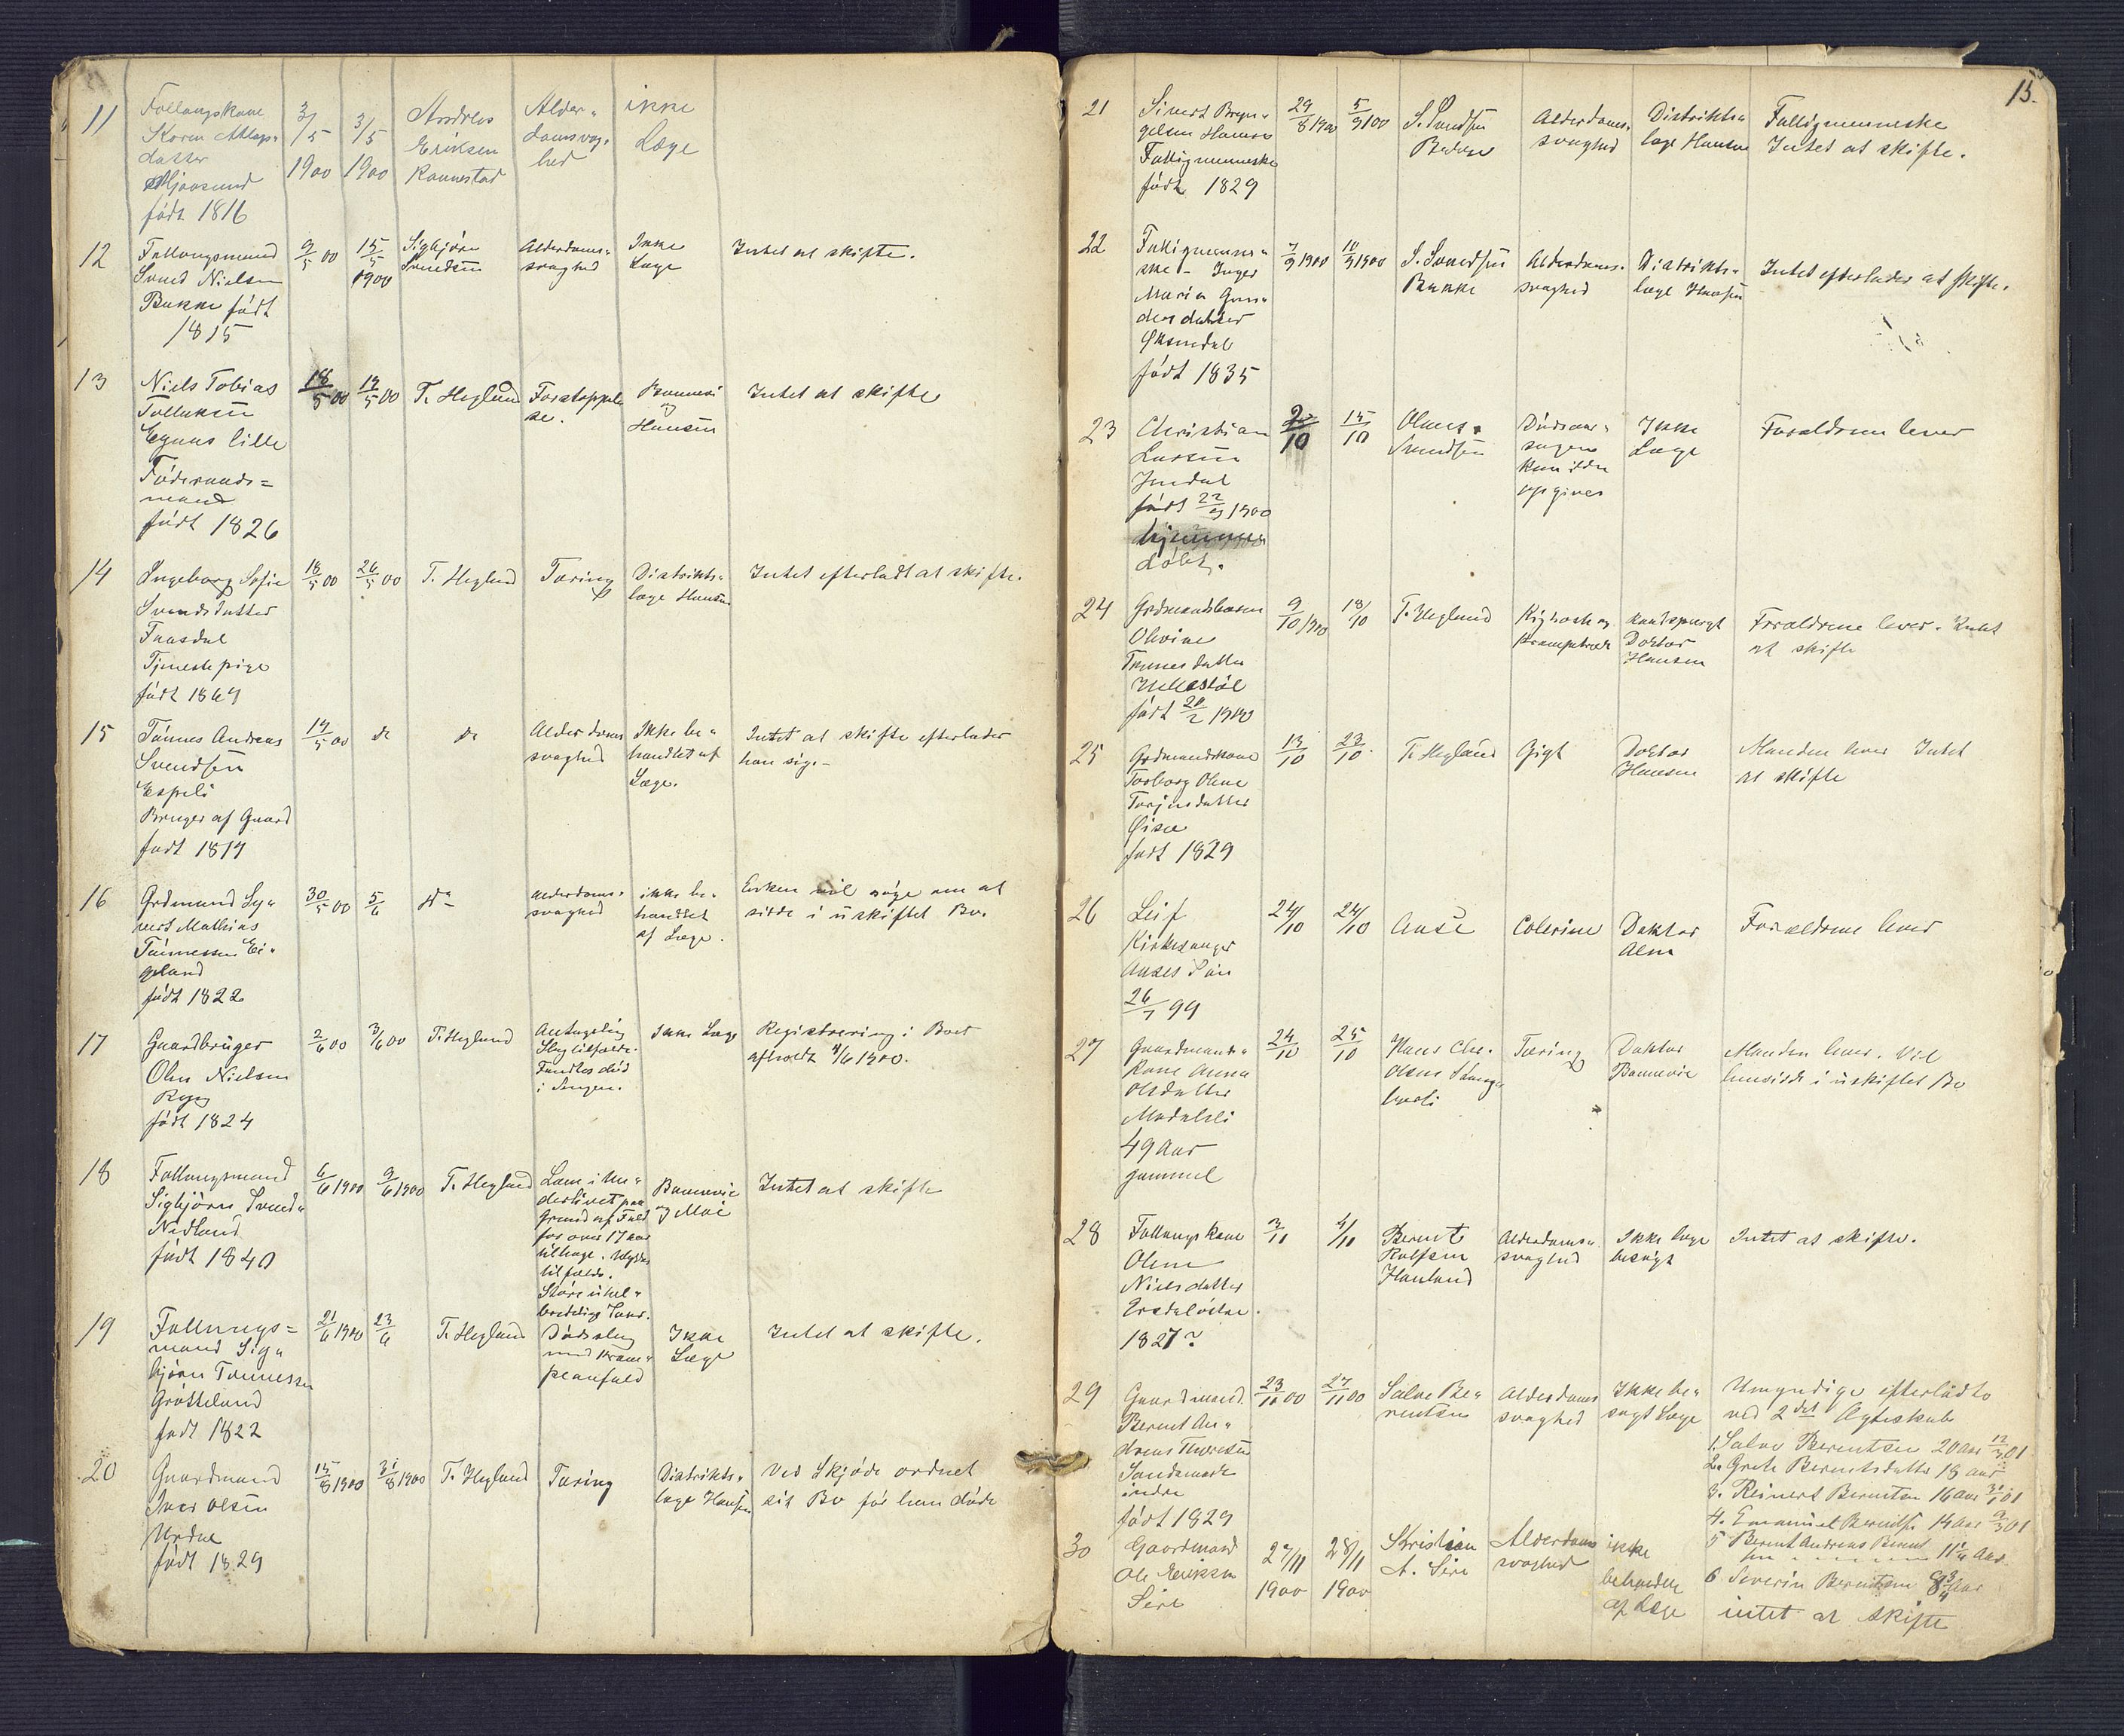 15.
11
Follaugskone
Karen Atlags-
datter
Mjaasund
født 1816
3/5 1900
3/5 1900
Andreas
Eriksen
Rannestad
Alder-
domsvag-
hed
ikke
Læge
12
Follaugsmand
Svend Nielsen
Bakke født
1815
9/5 00
15/5 1900
Sigbjørn
Svendsen
Alderdoms-
svaghed
Ikke
Læge
Intet at skifte.
13
Niels Tobias
Tollaksen
Egenes lille
Føderaads=
mand
født 1826
18/5 00
19/5 00
T. Heglund
Forstoppel
se.
Bonnevie
og
Hansen
Intet at skifte
14
Ingeborg Sofie
Svendsdatter
Faasdal
Tjenestepige
født 1869
18/5 00
26/5 00
T. Heglund
Tæring
Distrikts-
læge Hansen
Intet efterladt at skifte.
15
Tønnes Andreas
Svendsen
Espeli
Bruger af Gaard
født 1819
19/5 00
do
do
Alderdoms
svaghed
Ikke be-
handlet af
Læge.
Intet at skifte efterlader
han sig.-
16
Grdmand Sy-
vert Mathias
Tønnessen Ei-
geland
født 1822
30/5 00
5/6
do
Alderdoms-
svaghed
ikke be-
handlet
af Læge.
Enken vil søge om at
sidde i uskiftet Bo.
17
Gaardbruger
Olen Nielsen
Rygg
født 1824
2/6 00
3/6 00
T. Heglund
Antagelig
Slagtilfælde.
Fundtes død
i Sengen.
Ikke Læge
Registrering i Boet
afholdt 4/6 1900.
18
Follaugsmand
Sigbjørn Svend-
Nedland
født 1840
6/6 1900
9/6 1900
T. Heglund
Lam i Un-
derlivet paa
Grund af Fald
for over 17 aar
tilbage. Ulykkes
tilfælde.
Store uhel-
bredelige Saar.
Bonnevie
og Moe
Intet at skifte
19
Follaugs=
mand Sig-
bjørn Tønnessen
Grøtteland
født 1822
21/6 1900
23/6
T. Heglund
Dødsslag
med Kram-
peanfald
Ikke
Læge
Intet at skifte.
20
Gaardmand
Iver Olsen
Urdal
født 1829
15/8 1900
31/8 1900
T. Heglund
Tæring
Distrikts-
læge Hansen
Ved Skjøde ordnet
sit Bo før han døde
21
Sivert Bryn-
gelsen Hamre
Fattigmenneske
født 1829
29/8 1900
5/9 00
S. Svendsen
Bakke
Alderdoms-
svaghed
Distrikts-
læge Hansen
Fattigmenneske
Intet at skifte.
22
Fattigmenne-
ske- Inger
Maria Gun-
dersdatter
Øksendal
født 1835
7/9 1900
10/9 1900
S. Svendsen
Bakke
Alderdoms-
svaghed
Distrikts-
læge Hansen
Intet efterlader at skifte.
23
Christian
Larsen
Indal
født 22/9 1900
hjemme
døbt.
10
15/10
Olaus
Svendsen
Dødsaar-
sagen
kan ikke
opgives
Ikke
Læge
Forældrene lever
24
Grdmandsbarn
Olivine
Tønnesdatter
født 20/2 1900
9/10 1900
18/10
T. Heglund
Kighoste og
Krampetræk
Raadspurgt
Doktor
Hansen
Forældrene lever. Intet
at skifte
25
Grdmandskone
Torborg Olene
Torjusdatter
Øisæ
født 1829
13/10
23/10
T. Heglund
Gigt
Doktor
Hansen
Manden lever Intet
at skifte
26
Leif
Kirkesanger
Aases Søn
26/7 99
24/10
24/10
Aase
Colerine
Doktor
Alm
Forældrene lever
27
Gaardmands-
kone Anna
Olsdatter
Modalsli
49 Aar
gammel
24/10
25/10
Hans Chr.
Olsen
Tæring
Doktor
Bonnevie
Manden lever. Vil
hensidde i uskiftet Bo
28
Follaugskone
Olene
Nielsdatter
1827?
3/11
4/11
Berent
Rolfsen
Haaland
Alderdoms-
svaghed
Ikke læge
besøgt
Intet at skifte.
29
Gaardmand
Berent An-
dreas Thoresen
Sandsmark
indre
født 1829
23/11 00
27/11 00
Salve Be-
rentsen
Alderdoms
svaghed
Ikke be-
søgt Læge
Umyndige efterladte
ved 2det Ægteskab
1. Salve Berentsen 20 aar 12/3 01
2. Grete Berentsdatter 18 aar
3. Reinert Berentsen 16 aar 31/1 01
4. Emanuel Berentsen 14 aar 9/3 01
5 Berent Andreas Berent
sen - - - - - 11 1/4 Aar
6 Severin Berentsen 8 3/4 Aar
30
Gaardmand
Ole Eriksen
Sire
27/11 1900
28/11 1900
Kristian
A. Sire
Alderdoms
svaghed
ikke
behandlet
af Læge
intet at skifte